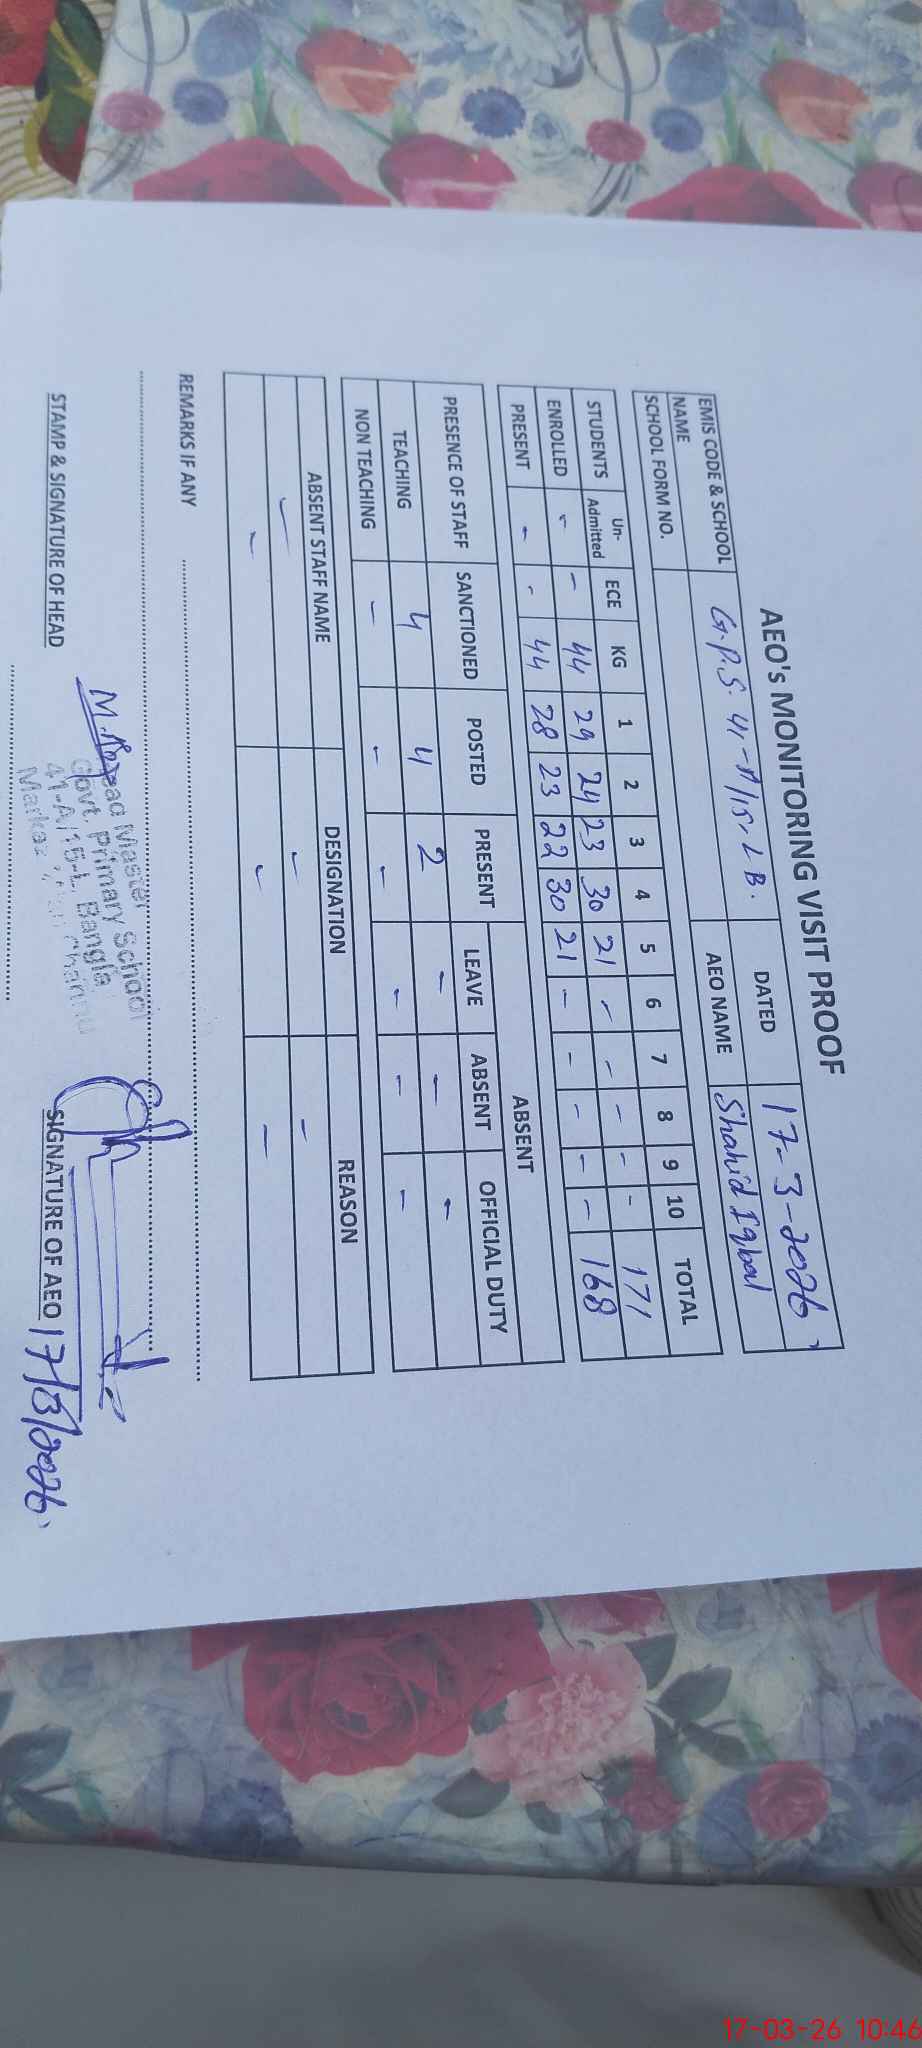 AEO's MONITORING VISIT PROOF
EMIS CODE & SCHOOL NAME G.P.S. 41-A/15-L B. DATED 17-3-2026
SCHOOL FORM NO. AEO NAME Shahid Iqbal
STUDENTS Un-Admitted ECE KG 1 2 3 4 5 6 7 8 9 10 TOTAL
ENROLLED - - 44 29 24 23 30 21 - - - - - 171
PRESENT - - 44 28 23 22 30 21 - - - - - 168
ABSENT
PRESENCE OF STAFF SANCTIONED POSTED PRESENT LEAVE ABSENT OFFICIAL DUTY
TEACHING 4 4 2 - - -
NON TEACHING - - - - - -
ABSENT STAFF NAME DESIGNATION REASON
- - -
- - -
REMARKS IF ANY
Head Master
Govt. Primary School
41-A/15-L Bangla
Markaz Channu
STAMP & SIGNATURE OF HEAD SIGNATURE OF AEO 17/3/2026
17-03-26 10:46